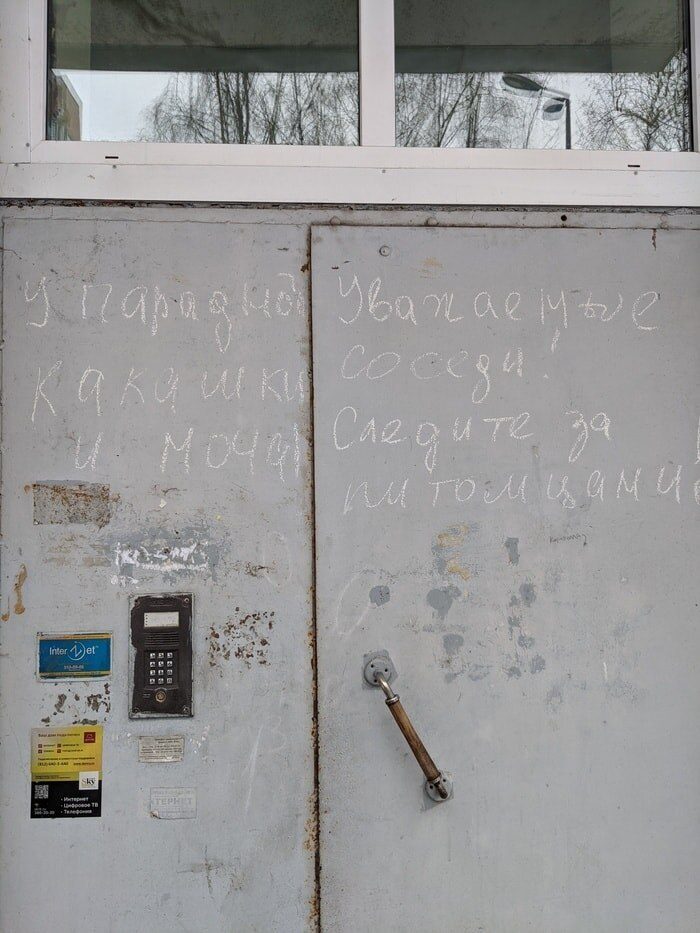 У парадной
какашки
и моча
Уважаемые
соседи!
Следите за
питомцами
InterZet
Интернет
Цифровое ТВ
Телефония
sky
ТЕРНЕТ